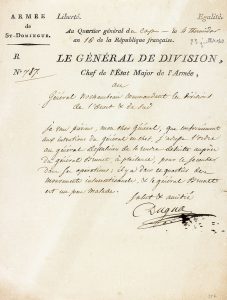 ARMÉE
de
St-DOMINGUE.
Liberté.
Egalité.
Au Quartier général du Cap le 4 Thermidor
an 10 de la République française.
R.
N.° 787.
LE GÉNÉRAL DE DIVISION,
Chef de l'État Major de l'Armée,
au
Général Rochambeau commandant les divisions
de l'Ouest & du Sud
Je vous préviens, mon cher Général, que conformément
aux intentions du général en chef, j'adresse l'ordre
au général de se rendre auprès
du général Brunet, à pour le seconder
dans ses opérations; il y a dans ce quartier des
mouvements & le général Brunet
est un peu malade.
Salut & amitié
Dugua